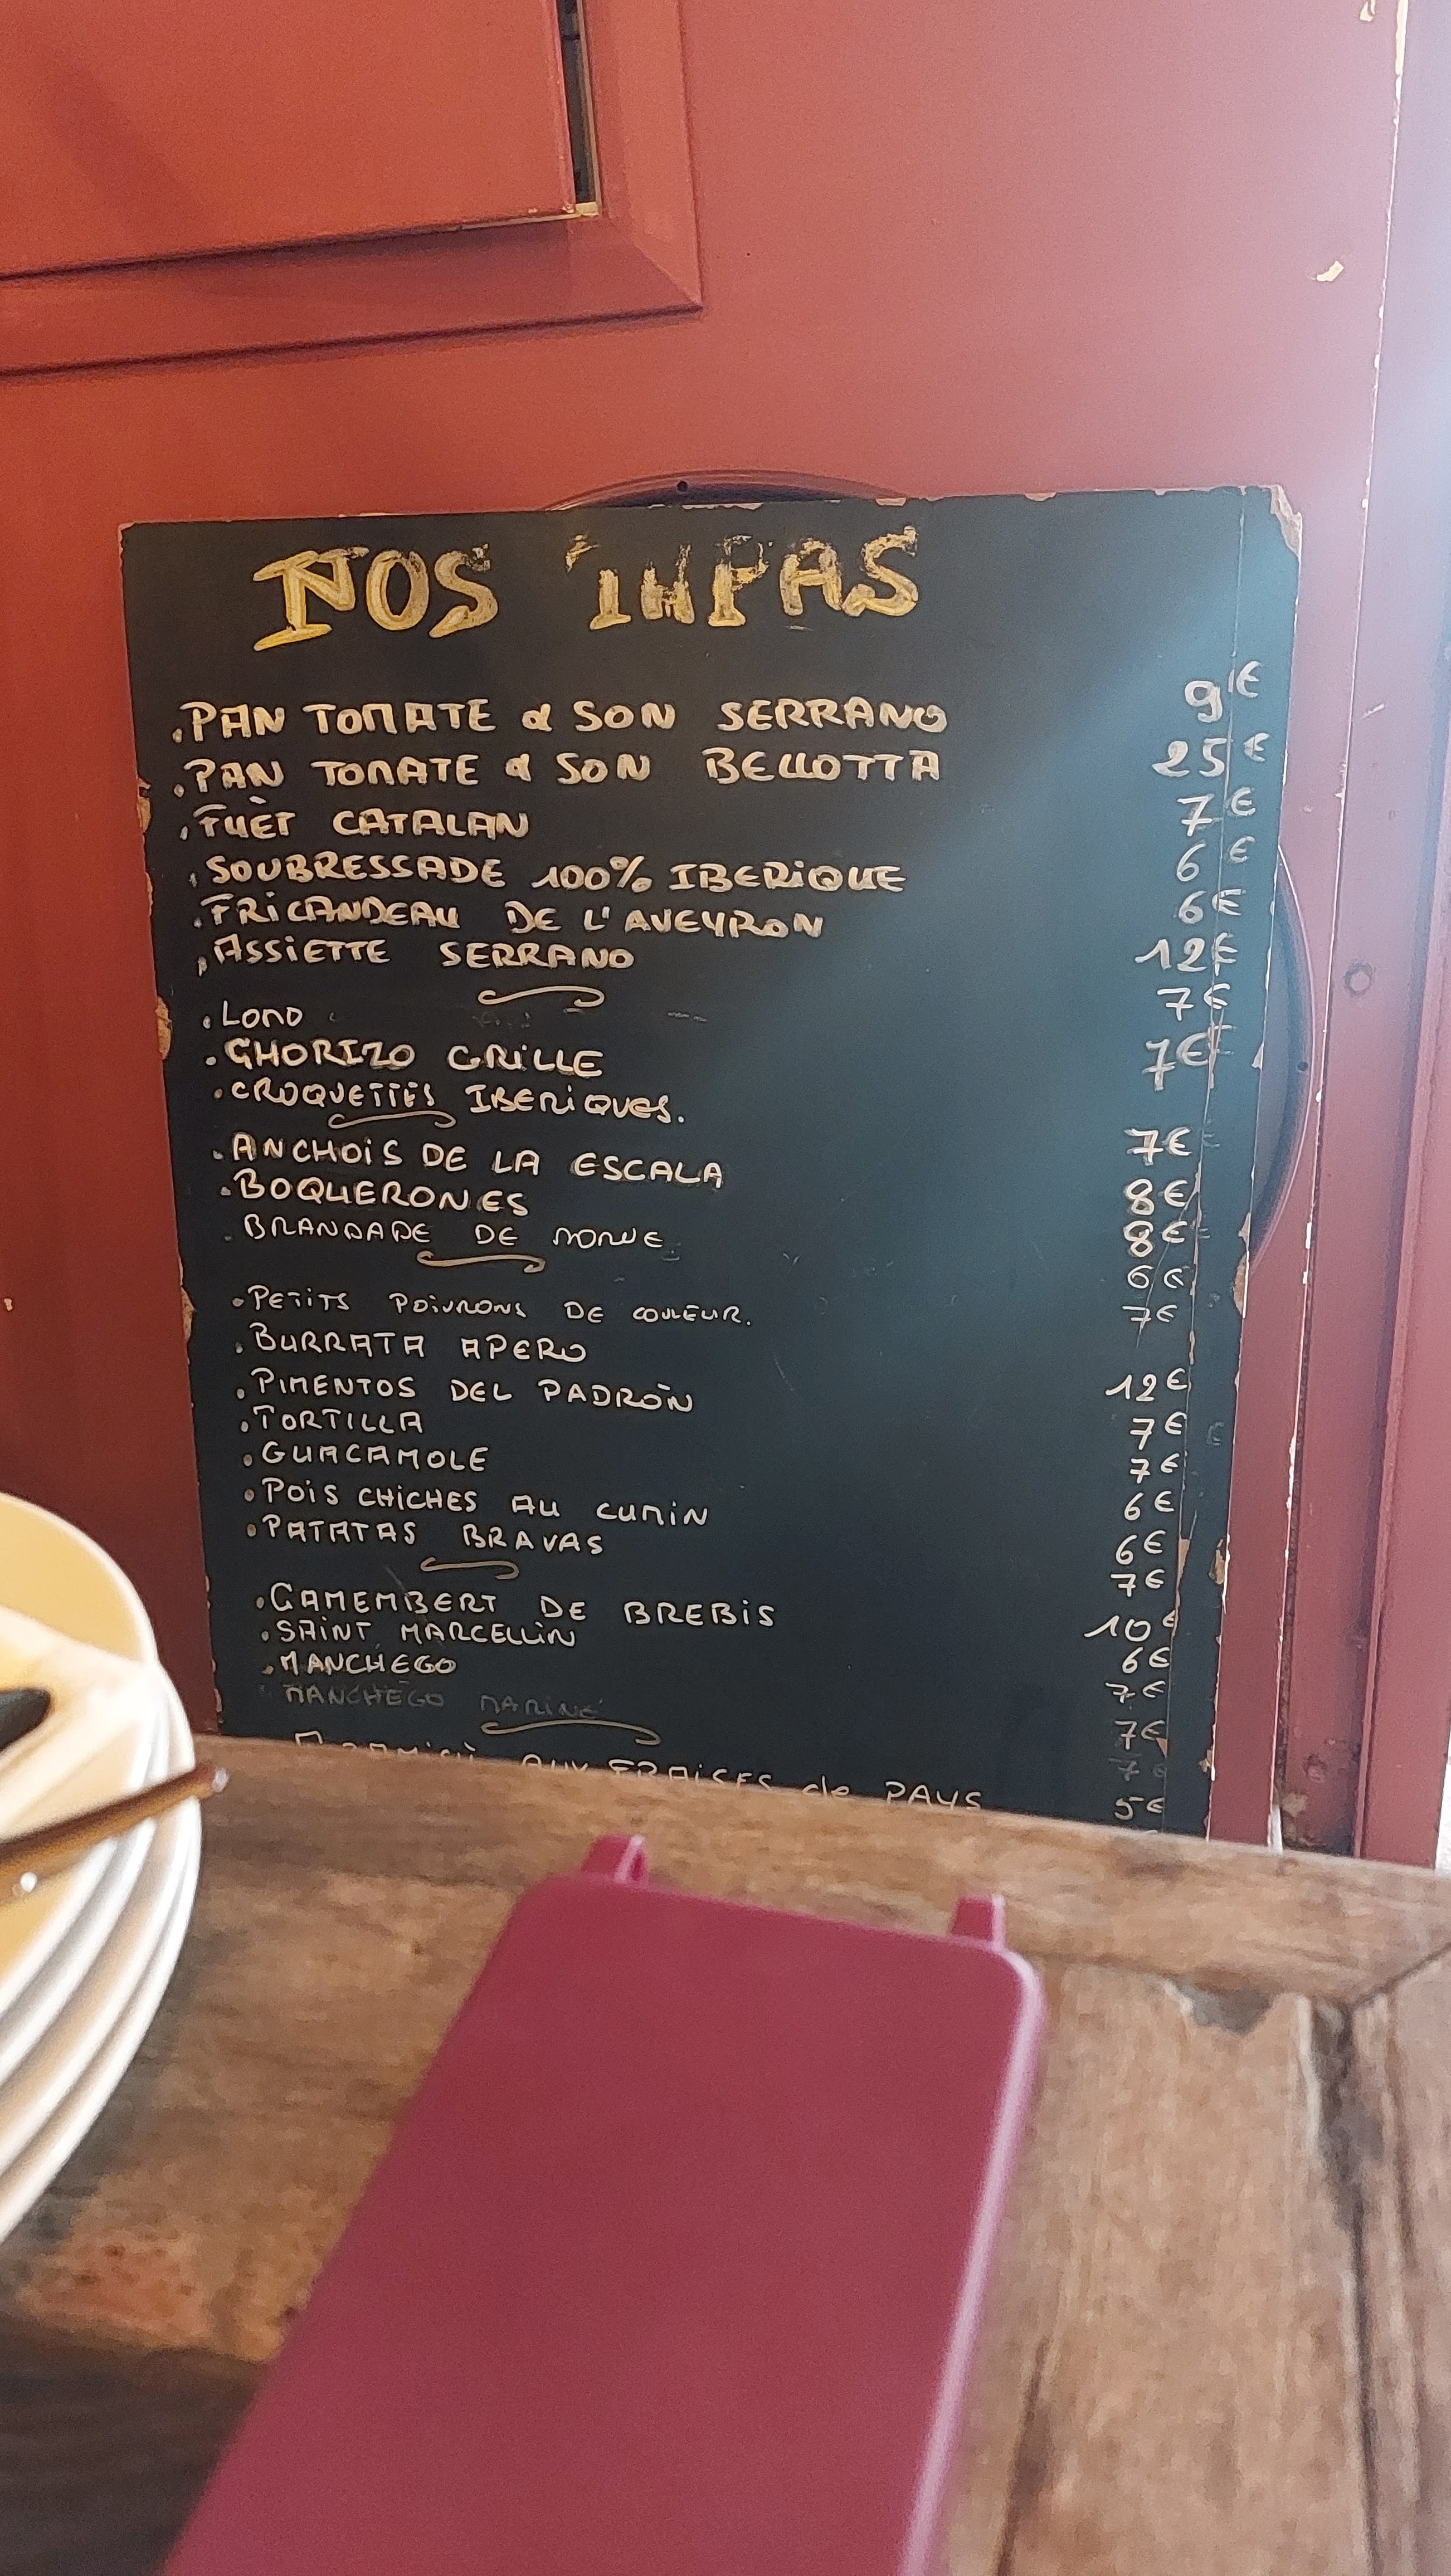 NOS TAPAS
.PAN TOMATE & SON SERRANO 9€
.PAN TOMATE & SON BELLOTTA 25€
.FUET CATALAN 7€
.SOUBRESSADE 100% IBERIQUE 6€
.FRICANDEAU DE L'AVEYRON 6€
.ASSIETTE SERRANO 12€
.LOMO 7€
.CHORIZO GRILLE 7€
.CROQUETTES IBERIQUES. 7€
.ANCHOIS DE LA ESCALA 8€
.BOQUERONES 8€
.BRANDADE DE MORUE 6€
.PETITS POIVRONS DE COULEUR. 7€
.BURRATA APERO 12€
.PIMENTOS DEL PADRÒN 7€
.TORTILLA 7€
.GUACAMOLE 6€
.POIS CHICHES AU CUMIN 6€
.PATATAS BRAVAS 7€
.CAMEMBERT DE BREBIS 10€
.SAINT MARCELLIN 6€
.MANCHEGO 7€
MANCHEGO MARINÉ 7€
7€
AUX FRAISES de PAYS 5€